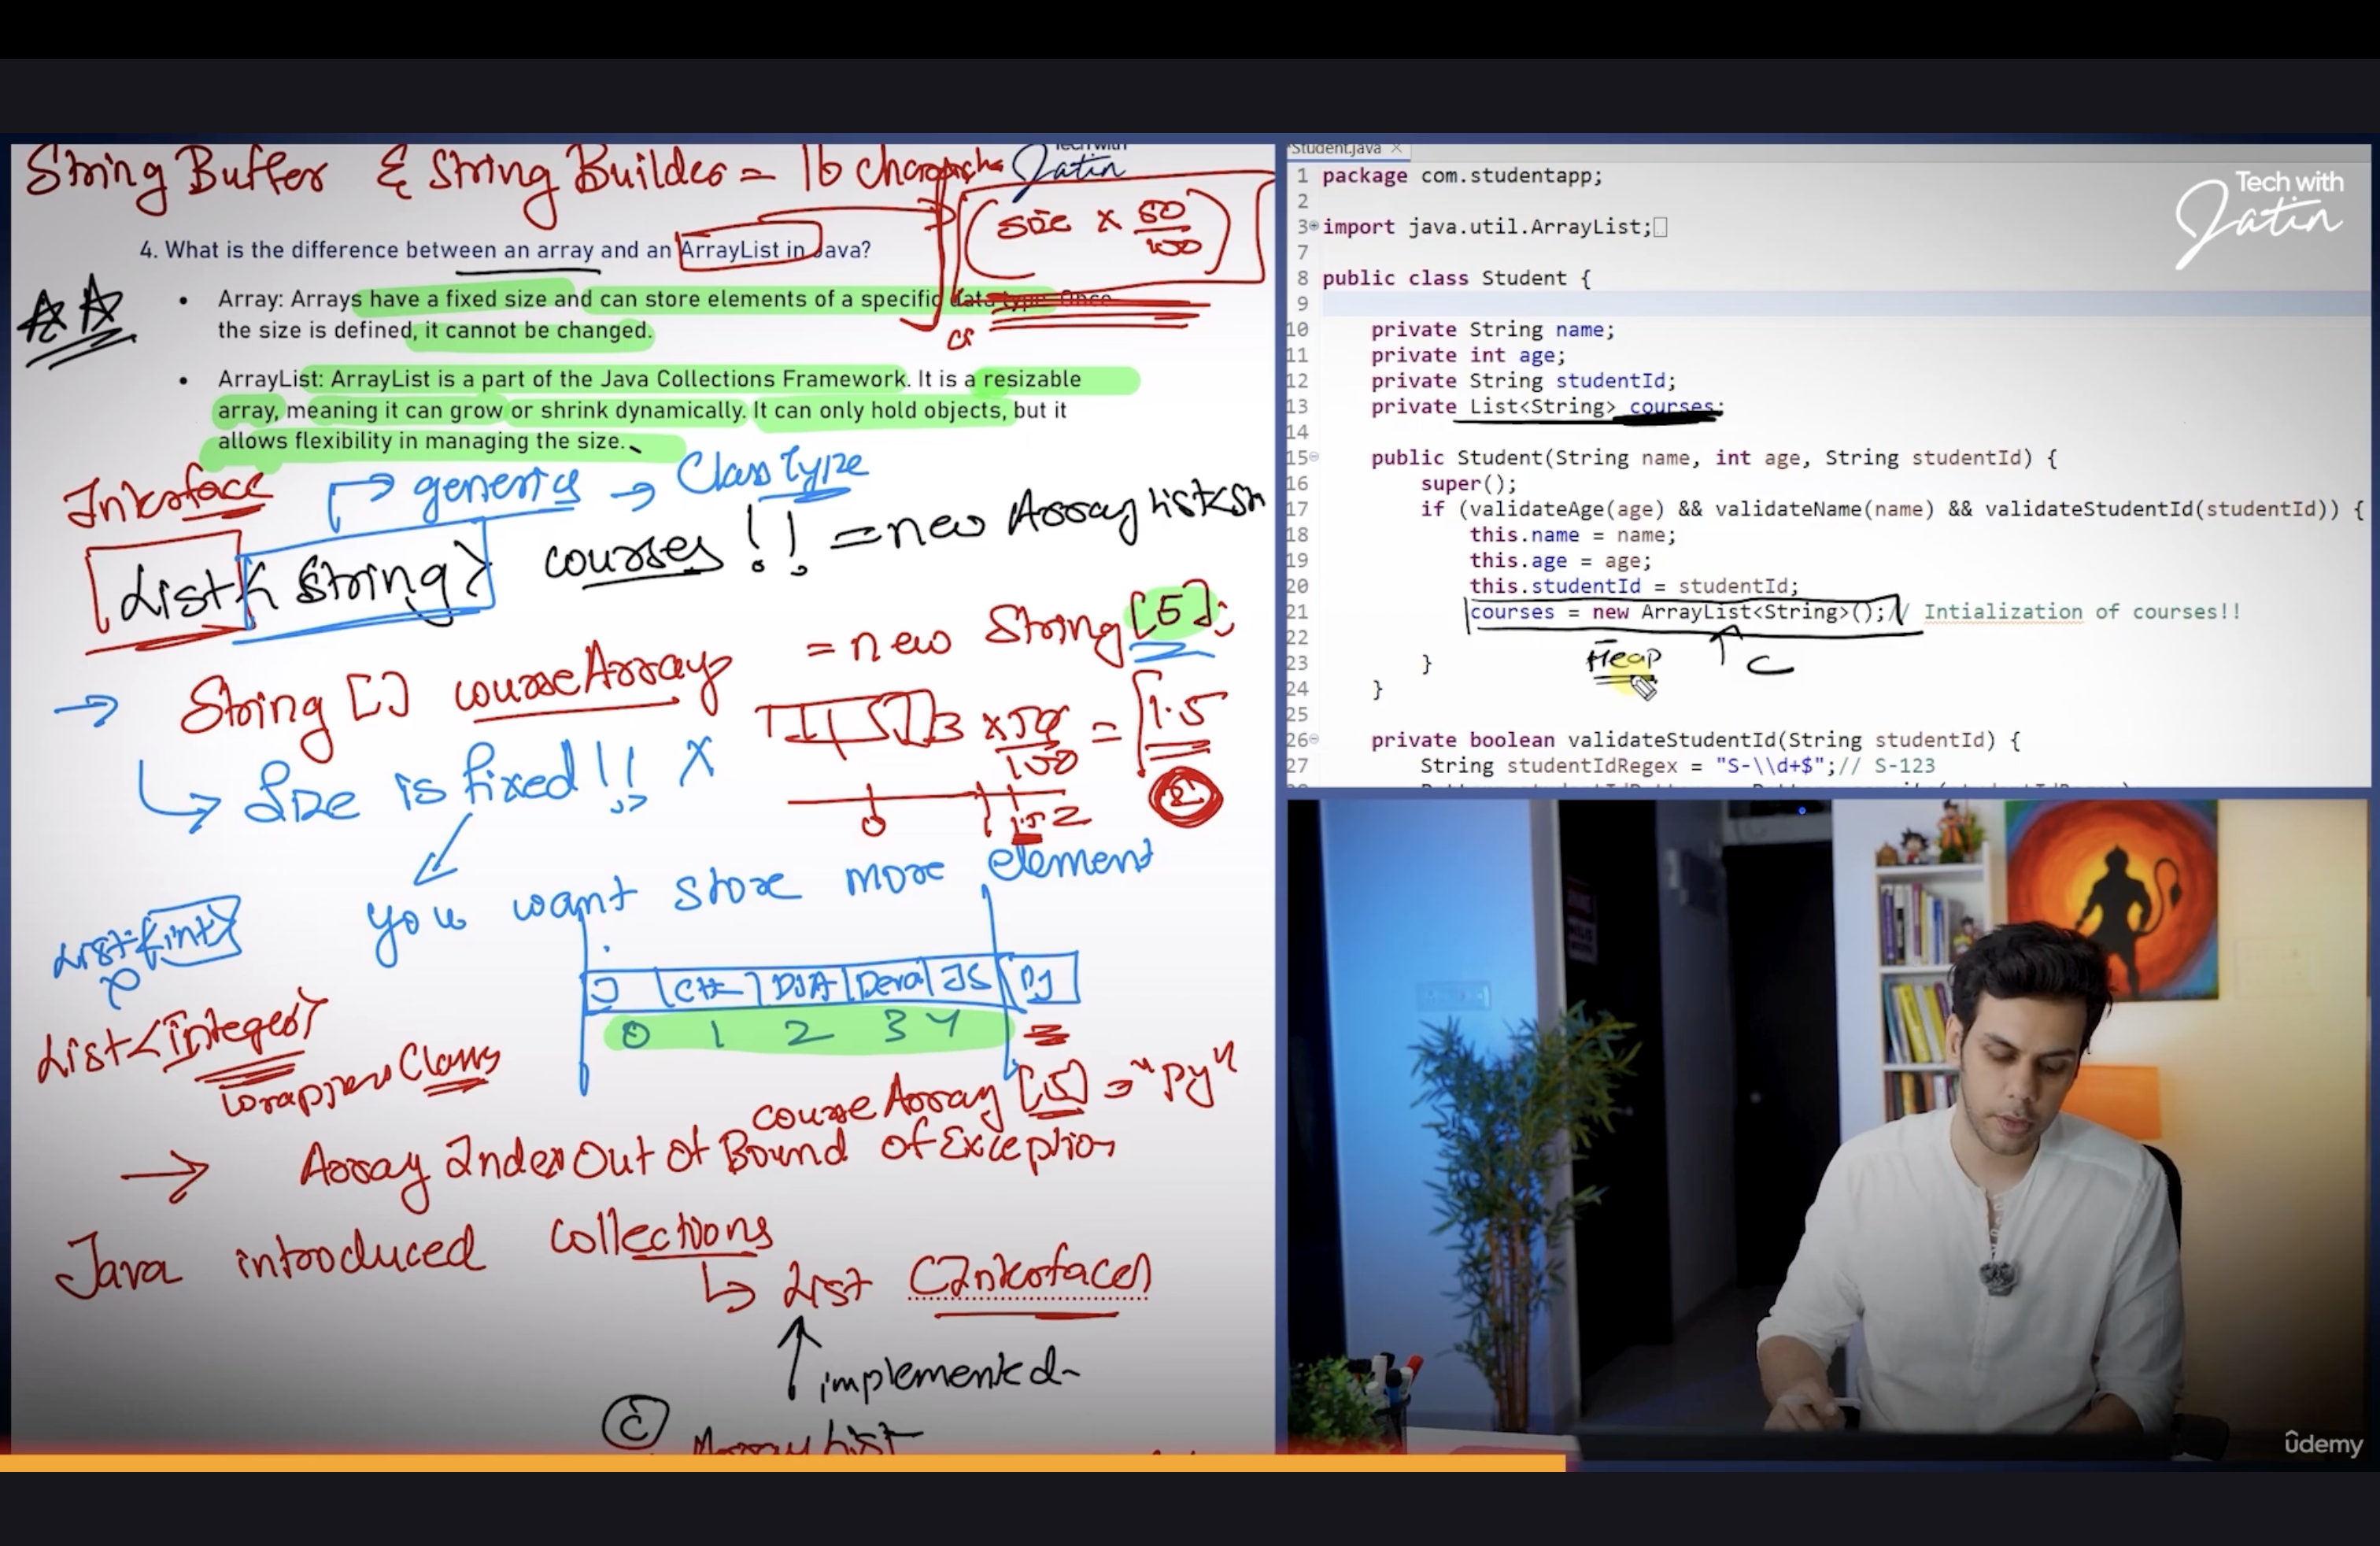 String Buffer & String Builder = 16 Character
Tech with
Jatin
(size × 50/100)
4. What is the difference between an array and an ArrayList in Java?
• Array: Arrays have a fixed size and can store elements of a specific data type. Once
the size is defined, it cannot be changed.
• ArrayList: ArrayList is a part of the Java Collections Framework. It is a resizable
array, meaning it can grow or shrink dynamically. It can only hold objects, but it
allows flexibility in managing the size.
Interface
generics → Class type
List<String> courses !! = new ArrayList<Str
→ String [] courseArray = new String [5];
3 × 50/100 = 1.5
Size is fixed !! X
0 1 1.5 2
2
you want store more element
List<int>
J C++ DSA Java JS PJ
0 1 2 3 4
List<Integer>
wrapper Class
courseArray [5] = "Py"
→ Array Index Out Of Bound of Exception
Java introduced collections
↳ List (Interface)
↑ implemented
C ArrayList
Student.java ×
1 package com.studentapp;
2
3 import java.util.ArrayList;
7
8 public class Student {
9
10 private String name;
11 private int age;
12 private String studentId;
13 private List<String> courses;
14
15 public Student(String name, int age, String studentId) {
16 super();
17 if (validateAge(age) && validateName(name) && validateStudentId(studentId)) {
18 this.name = name;
19 this.age = age;
20 this.studentId = studentId;
21 courses = new ArrayList<String>();// Intialization of courses!!
22
Heap C
23 }
24 }
25
26 private boolean validateStudentId(String studentId) {
27 String studentIdRegex = "S-\\d+$";// S-123
Tech with
Jatin
ûdemy